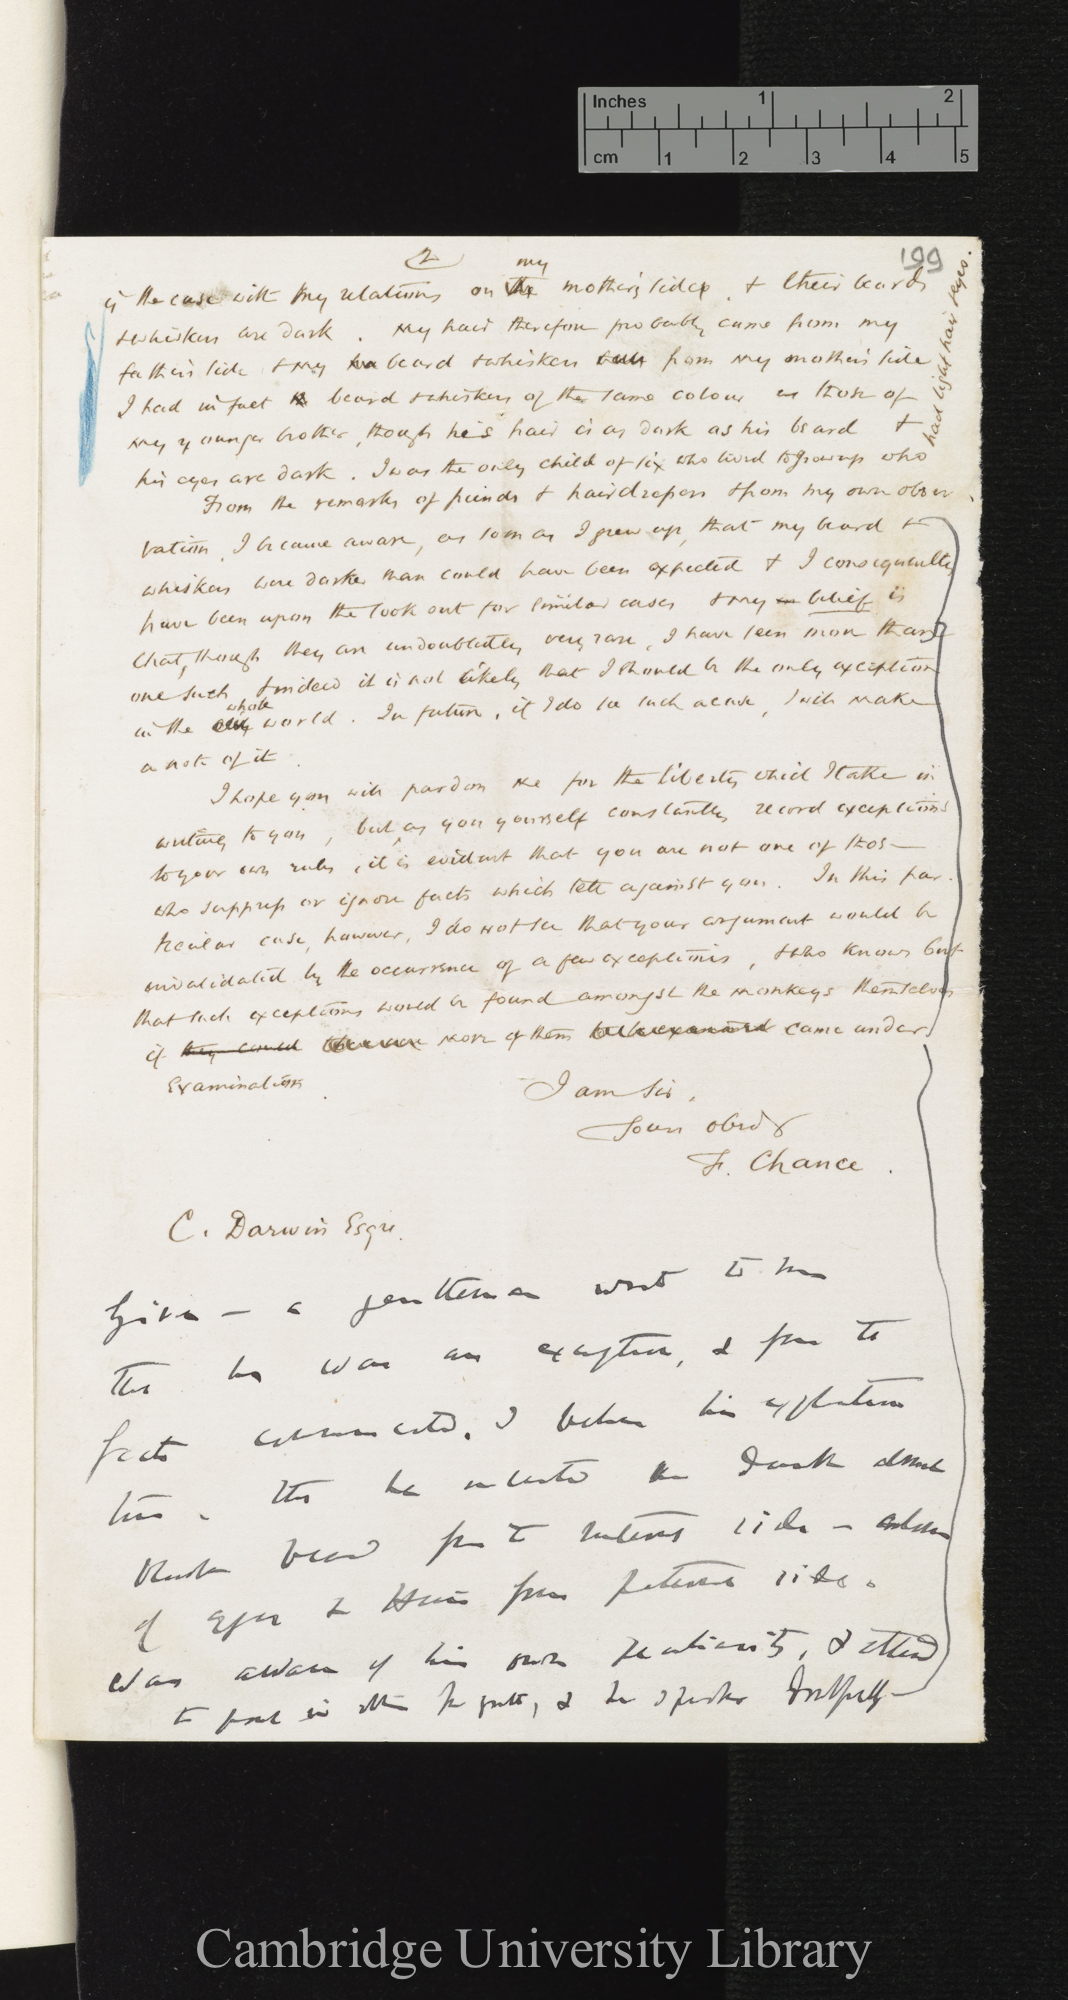 Inches 1 2
cm 1 2 3 4 5
2
199
my
is the case with my relations on the mother's side, & their beards
& whiskers are dark. My hair therefore probably came from my
father's side & my beard & whiskers from my mother's side
I had in fact beard & whiskers of the same colour as those of
my younger brother, though his hair is as dark as his beard &
his eyes are dark. I was the only child of six who lived to grow up who
had light hair & eyes.
From the remarks of friends & hairdressers & from my own obser
vation, I became aware, as soon as I grew up, that my beard &
whiskers were darker than could have been expected & I consequently
have been upon the look out for similar cases & my belief is
that, though they are undoubtedly very rare, I have seen more than
one such, & indeed it is not likely that I should be the only exception
whole
in the world. In future, if I do see such a case, I will make
a note of it.
I hope you will pardon me for the liberty which I take in
writing to you, but, as you yourself constantly record exceptions
to your own rules, it is evident that you are not one of those
who suppress or ignore facts which tell against you. In this par-
ticular case, however, I do not see that your argument would be
invalidated by the occurrence of a few exceptions, & who knows but
that such exceptions would be found amongst the monkeys themselves
if they could more of them came under
examination.
I am Sir,
Your obed
F. Chance.
C. Darwin Esqre.
Given — a gentleman wrote to me
that he was an exception, & from the
facts communicated, I believe his explanation
true. that he inherited his dark almost
black beard from the maternal side —
of eyes & Hair from paternal side.
was aware of his own peculiarity, & attend
to point in other people, & he speaks doubtfully —
Cambridge University Library